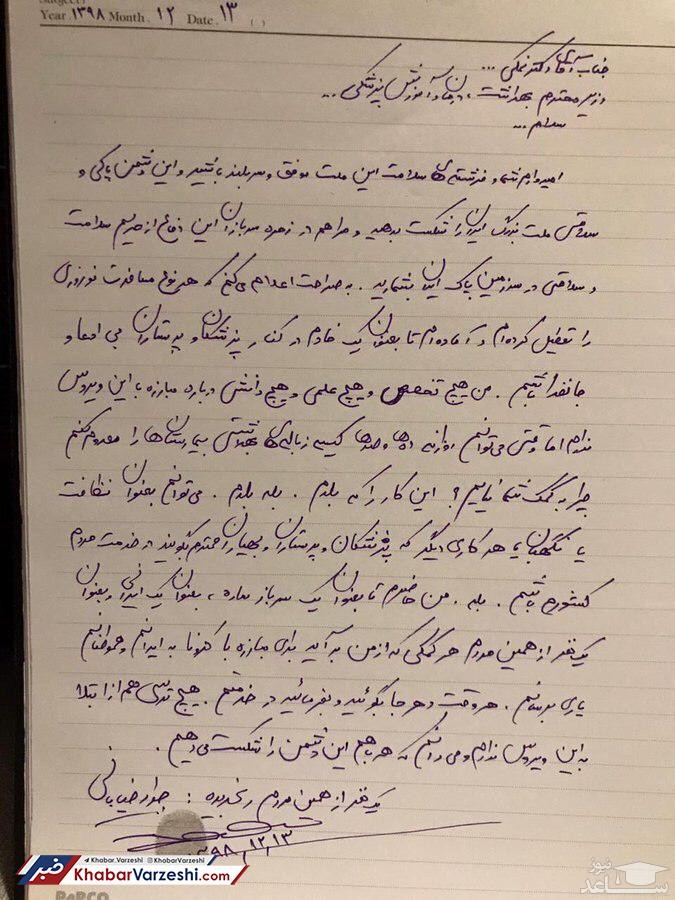 Year ۱۳۹۸ Month . ۱۲ Date . ۱۳ ( )
جناب آقای دکتر نمکی ...
وزیر محترم بهداشت ، درمان و آموزش پزشکی ...
سلام ...
امیدوارم شما و فرشته‌های سلامت این ملت موفق و سربلند باشید و این دشمن پاکی و
سلامتی ملت بزرگ ایران را شکست بدهید و مرا هم در زمره سربازان این دفاع از حریم سلامت
و سلامتی در سرزمین پاک ایران بشمارید . به صراحت اعلام می‌کنم که هر نوع مسافرت نوروزی
را تعطیل کرده‌ام و آماده‌ام تا بعنوان یک خادم در کنار پزشکان و پرستاران بی ادعا و
جانفدا باشم . من هیچ تخصص و هیچ علمی و هیچ دانشی درباره مبارزه با این ویروس
ندارم اما وقتی می‌توانم روزانه ده‌ها و صدها کیسه زباله‌های بهداشتی بیمارستان‌ها را معدوم کنم
چرا به کمک شما نیایم ؟ این کار را که بلدم . بله بلدم . می‌توانم بعنوان نظافت
یا نگهبان یا هر کاری دیگر که پزشکان و پرستاران و بهیاران محترم بگویند در خدمت مردم
کشورم باشم . بله . من حاضرم تا بعنوان یک سرباز ساده ، بعنوان یک ایرانی و بعنوان
یک نفر از همین مردم هر کمکی که از من بر آید برای مبارزه با کرونا به ایرانم و هموطنانم
یاری برسانم . هر وقت و هر جا بگوئید و بفرمائید در خدمتم . هیچ ترسی هم از ابتلا
به این ویروس ندارم و می‌دانم که همه با هم این دشمن را شکست می‌دهیم .
یک نفر از همین مردم رنجدیده : جواد خیابانی
۱۳۹۸,۱۲,۱۳
Khabar.Varzeshi KhabarVarzeshi
خبر KhabarVarzeshi.com
نیوز
ساعد
PAPCO